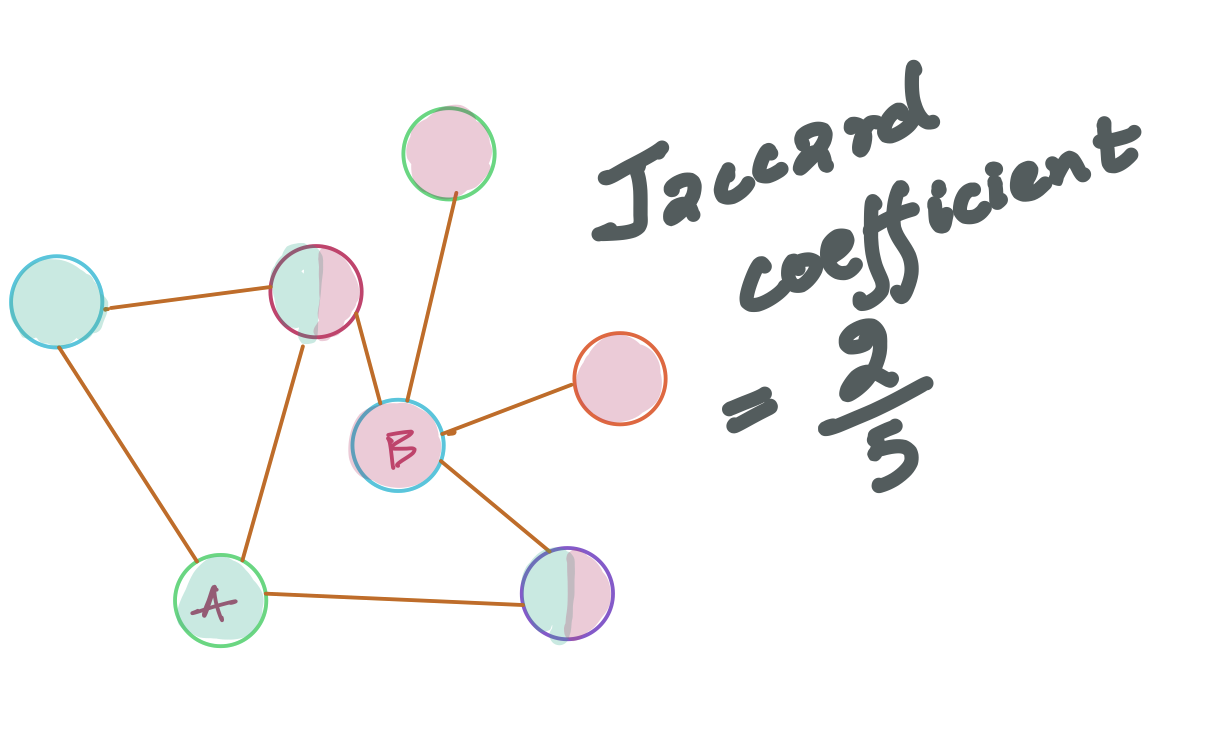 Jaccard
coefficient
= 2/5
B
A